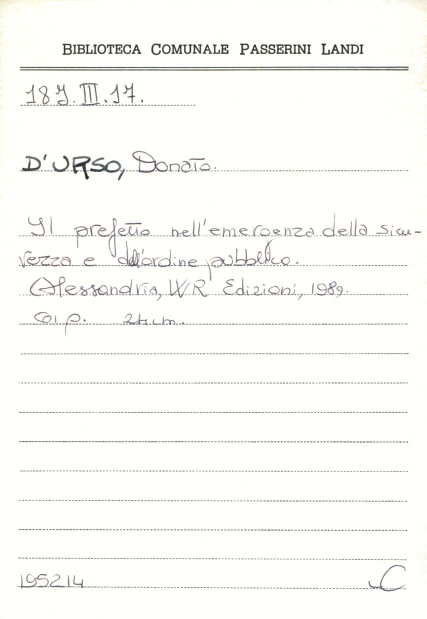 BIBLIOTECA COMUNALE PASSERINI LANDI
187.III.17.
D'URSO, Donato.
Il prefetto nell'emergenza della sicu-
rezza e dell'ordine pubblico.
Alessandria, WR Edizioni, 1989.
61 p. 24 cm.
195214
C